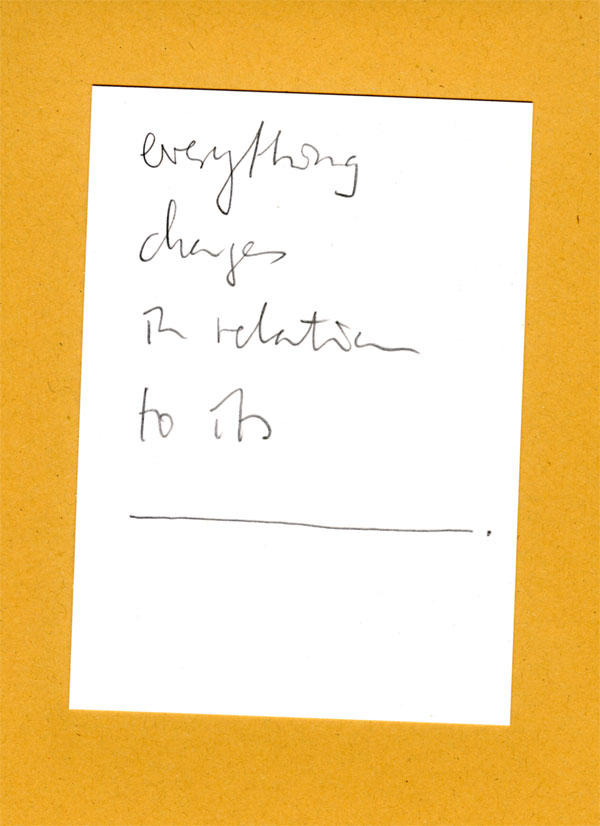 everything
changes
in relation
to its
____________.